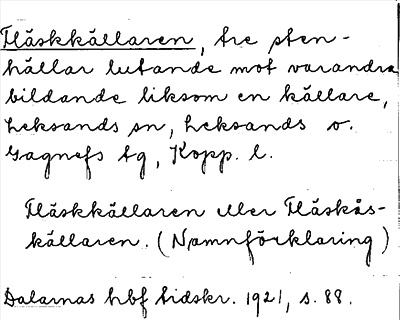 Fläskkällaren, tre sten-
hällar lutande mot varandra
bildande liksom en källare,
Leksands sn, Leksands o.
Gagnefs tg, Kopp. l.
Fläskkällaren eller Fläskås-
källaren. (Namnförklaring)
Dalarnas hbf tidskr. 1921, s. 88.